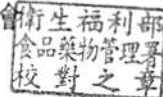 會衛生福利部
食品藥物管理署
校對之章